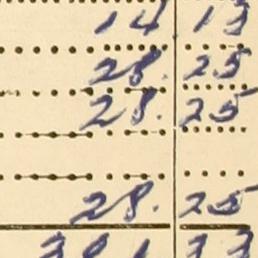 14 13
28. 25
28. 25
28. 25